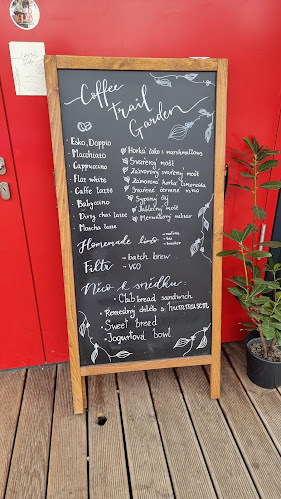 Coffee
trail
Garden
• Esko, Doppio
• Macchiato
• Cappuccino
• Flat white
• Caffe latte
• Babyccino
• Dirty chai latte
• Matcha latte
Horká čoko s marshmallows
Svařený mošt
Zázvorový svařený mošt
Zázvorová horká limonáda
Svařené červené víno
Sypaný čaj
Jablečný mošt
Homemade limo
Filtr → batch brew
→ V60
Něco k snědku:
• Club bread sandwich
• Řemeslný chléb s hummusem
• Sweet bread
• Jogurtová bowl